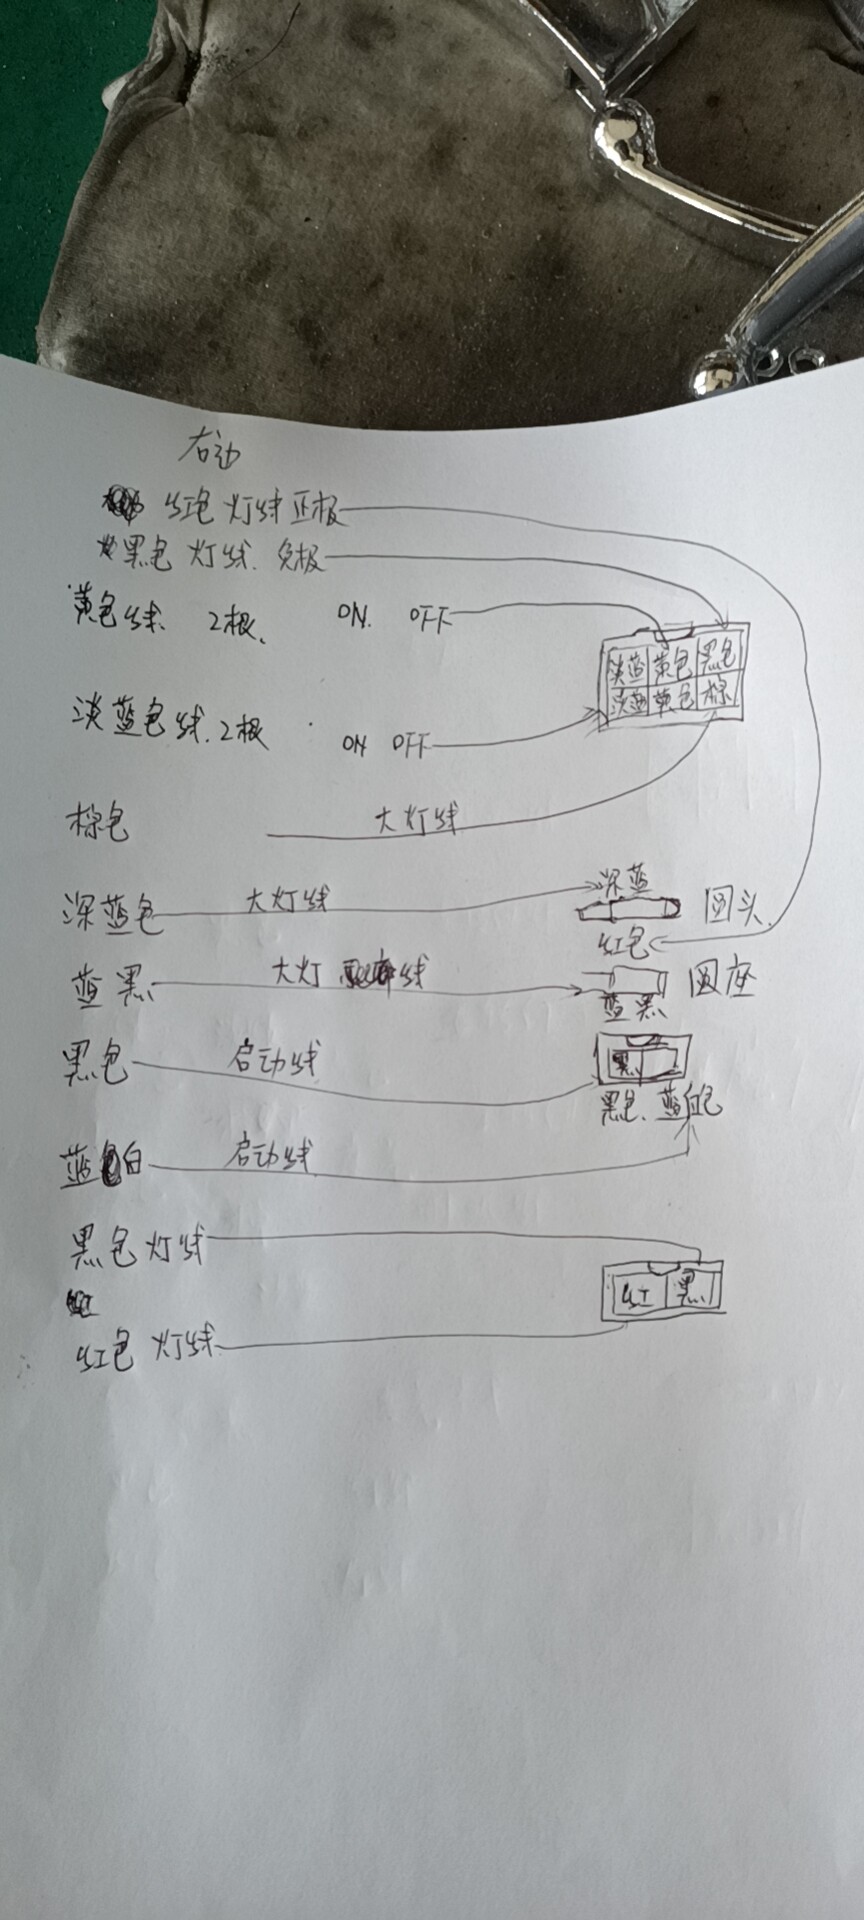 右边
红色 灯线 正极
黑色 灯线. 负极
黄色线. 2根. ON. OFF
淡蓝 黄色 黑色
淡蓝 黄色 棕
淡蓝色线. 2根 ON OFF
棕色 大灯线
深蓝色 大灯线 深蓝
圆头
红色
蓝黑 大灯 线 圆座
蓝黑
黑色 启动线 黑
黑色. 蓝白色
蓝白 启动线
黑色灯线
红 黑
红色 灯线